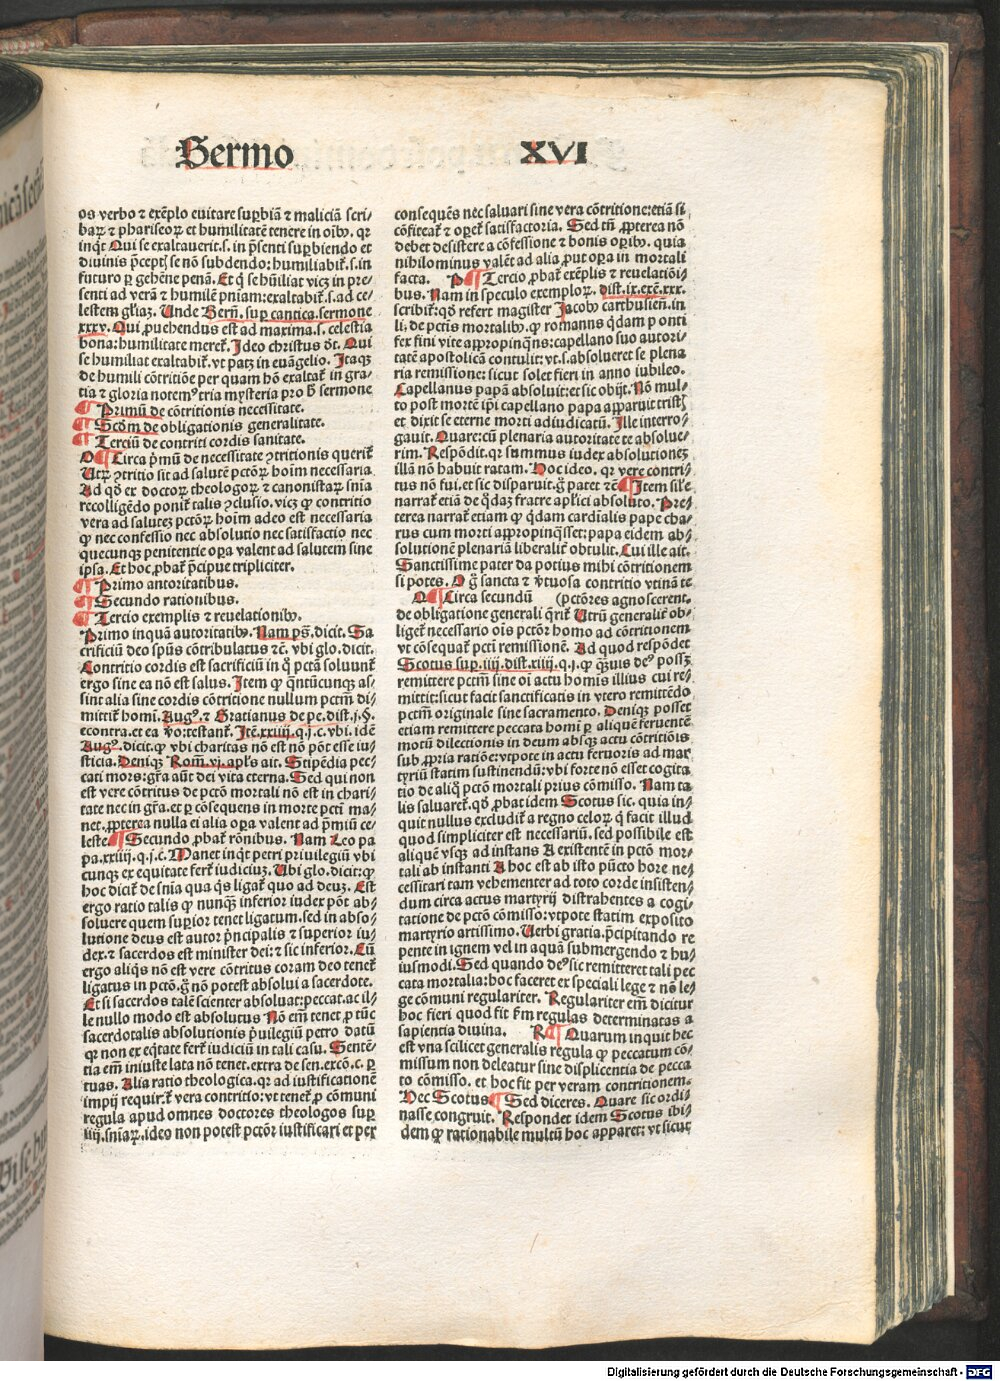 Sermo XVI
os verbo ⁊ exēplo euitare suꝑbiā ⁊ maliciā scri-
baꝝ ⁊ phariseoꝝ et humilitatē tenere in oībꝰ. qr
inqt Qui se exaltauerit.s. in p̄senti suꝑbiendo et
diuinis p̄ceptꝭ se nō subdendo: humiliabit̉.s. in
futuro ꝑ gehēne penā. Et q̇ se hūiliat vicꝫ in pre-
senti ad verā ⁊ humilē pn̄iam: exaltabit̉.s. ad ce-
lestem gl̓iaꝫ. Unde Bern̄. sup cantica. sermone
xxxv. Qui ꝓuehendus est ad maxima.s. celestia
bona: humilitate meret̉. Ideo christus dt̄. Qui
se humiliat exaltabit̉. vt patꝫ in euāgelio. Itaqꝫ
de humili cōtritiōe per quam hō exaltat̉ in gra-
tia ⁊ gloria notemꝰ tria mysteria pro h̄ sermone
¶ Primū de cōtritionis necessitate.
¶ Scd̄m de obligationis generalitate.
¶ Terciū de contriti cordis sanitate.
O ¶ Circa p̄mū de necessitate ꝯtritionis querit̉
Utꝝ ꝯtritio sit ad salutē pctōꝝ hoīm necessaria
Ad qd̄ ex doctoꝝ theologoꝝ ⁊ canonistaꝝ sn̄ia
recolligēdo ponit̉ talis ꝯclusio. vicꝫ ꝙ contritio
vera ad salutez pctōꝝ hoīm adeo est necessaria
ꝙ nec confessio nec absolutio nec satisfactio nec
quecunqꝫ penitentie oꝑa valent ad salutem sine
ipsa. Et hoc ꝓbat̉ p̄cipue tripliciter.
¶ Primo autoritatibus.
¶ Secundo rationibus.
¶ Tercio exemplis ⁊ reuelationibꝰ.
Primo inquā autoritatibꝰ. Nam ps̄. dicit. Sa
crificiū deo spūs cōtribulatus ⁊c̄. vbi glo. dicit.
Contritio cordis est sacrificiū in q̄ pctā soluunt̉
ergo sine ea nō est salus. Item ꝙ q̄ntūcunqꝫ as-
sint alia sine cordis cōtritione nullum pctm̄ di-
mittit̉ homī. Augꝰ. ⁊ Gratianus de pe. dist. j. §.
econtra. et ea v̄o: testant̉. Itē. xxiiij. q. j. c. vbi. idē
Augꝰ. dicit. ꝙ vbi charitas nō est nō pōt esse iu-
sticia. Deniqꝫ Rom̄. vj. apl̓s ait. Stipēdia pec-
cati mors: gr̄a aūt dei vita eterna. Sed qui non
est vere cōtritus de pctō mortali nō est in chari-
tate nec in gr̄a. et ꝑ cōsequens in morte pctī ma-
net. ꝓpterea nulla ei alia oꝑa valent ad p̄miū ce-
leste. ¶ Secundo ꝓbat̉ rōnibus. Nam Leo pa
pa. xxiiij. q. j. c. Manet inqt petri priuilegiū vbi
cunqꝫ ex equitate fert̉ iudiciuꝫ. Ubi glo. dicit: ꝙ
hoc dicit̉ de sn̄ia qua qs ligat̉ quo ad deuꝫ. Est
ergo ratio talis ꝙ nunqꝫ inferior iudex pōt ab-
soluere quem suꝑior tenet ligatum. sed in abso-
lutione deus est autor p̄ncipalis ⁊ superior iu-
dex. ⁊ sacerdos est minister dei: ⁊ sic inferior. Cū
ergo aliqs nō est vere cōtritus coram deo tenet̉
ligatus in pctō. g̊ nō potest absolui a sacerdote.
Et si sacerdos talē scienter absoluat: peccat. ac il-
le nullo modo est absolutus Nō em̄ tenet ꝓ tūc
sacerdotalis absolutionis p̄uilegiū petro datū
qꝛ non ex eq̄tate fert̉ iudiciū in tali casu. Sentē-
tia em̄ iniuste lata nō tenet. extra de sen. excō. c. ꝑ
tuas. Alia ratio theologica. qr ad iustificationē
impij requirit̉ vera contritio: vt tenet̉ ꝓ cōmuni
regula apud omnes doctores theologos suꝑ
iiij. sn̄iaꝝ. ideo non potest pctōr iustificari et per
consequēs nec saluari sine vera cōtritione: etiā si
cōfiteat̉ ⁊ oꝑet̉ satisfactoria. Sed tn̄ ꝓpterea nō
debet desistere a cōfessione ⁊ bonis oꝑibꝰ. quia
nihilominus valēt ad alia ꝓut oꝑa in mortali
facta. P ¶ Tercio ꝓbat̉ exēplis ⁊ reuelatiōi-
bus. Nam in speculo exemploꝝ. dist. ix. exē. xxx.
scribit̉: qd̄ refert magister Jacobꝰ carthusien̄. in
li. de pctis mortalibꝰ. ꝙ romanꝰ q̇dam ponti
fex fini vite appropinqn̄s: capellano suo autori-
tatē apostolicā contulit: vt.s. absolueret se plena
ria remissione: sicut solet fieri in anno iubileo.
Capellanus papā absoluit: et sic obijt. Nō mul-
to post mortē ip̄i capellano papa apparuit tristꝭ
et dixit se eterne morti adiudicatū. Ille interro-
gauit. Quare: cū plenaria autoritate te absolue-
rim. Respōdit. qr summus iudex absolutionez
illā nō habuit ratam. Hoc ideo. qr vere contri-
tus nō fui. et sic disparuit. g̊ patet ⁊c̄ ¶ Item sil̓e
narrat̉ etiā de q̇daꝫ fratre apl̓ici absoluto. Pre-
terea narrat̉ etiam ꝙ q̇dam cardīalis pape cha-
rus cum morti appropinqsset: papa eidem ab-
solutionē plenariā liberalit̉ obtulit. Cui ille ait.
Sanctissime pater da potius mihi cōtritionem
si potes. O g̊ sancta ⁊ v̄tuosa contritio vtinā te
Q ¶ Circa secundū (pctōres agnoscerent.
de obligatione generali q̄rit̉ Utrū generalit̉ ob-
liget̉ necessario oīs pctōr homo ad cōtritionem
vt cōsequat̉ pctī remissionē. Ad quod respōdet
Scotus suꝑ. iiij. dist. xiiij. q. j. ꝙ q̄uis deꝰ possꝫ
remittere pctm̄ sine oī actu homis illius cui re-
mittit: sicut facit sanctificatis in vtero remittēdo
pctm̄ originale sine sacramento. Deniqꝫ posset
etiam remittere peccata homi ꝑ aliquē feruentē
motū dilectionis in deum absqꝫ actu cōtritiōis
sub ꝓpria ratiōe: vtpote in actu feruoris ad mar
tyriū statim sustinendū: vbi forte nō esset cogita
tio de aliq̇ pctō mortali prius cōmisso. Nam ta-
lis saluaret̉. qd̄ ꝓbat idem Scotus sic. quia in-
quit nullus excludit̉ a regno celoꝝ q̇ facit illud
quod simpliciter est necessariū. sed possibile est
aliquē vsqꝫ ad instans A existentē in pctō mor-
tali ab instanti A hoc est ab isto pūcto hore ne-
cessitari tam vehementer ad toto corde insisten-
dum circa actus martyrij distrahentes a cogi
tatione de pctō cōmisso: vtpote statim exposito
martyrio artissimo. Uerbi gratia. p̄cipitando re
pente in ignem vel in aquā submergendo ⁊ hu-
iusmodi. Sed quando deꝰ sic remitteret tali pec
cata mortalia: hoc faceret ex speciali lege ⁊ nō le-
ge cōmuni regulariter. Regulariter em̄ dicitur
hoc fieri quod fit fm̄ regulas determinatas a
sapientia diuina. R ¶ Quarum inquit hec
est vna scilicet generalis regula ꝙ peccatum cō-
missum non deleatur sine displicentia de pecca
to cōmisso. et hoc fit per veram contritionem.
Hec Scotus ¶ Sed diceres. Quare sic ordi-
nasse congruit. Respondet idem Scotus ibi-
dem ꝙ rationabile multū hoc apparet: vt sicut
Digitalisierung gefördert durch die Deutsche Forschungsgemeinschaft - DFG